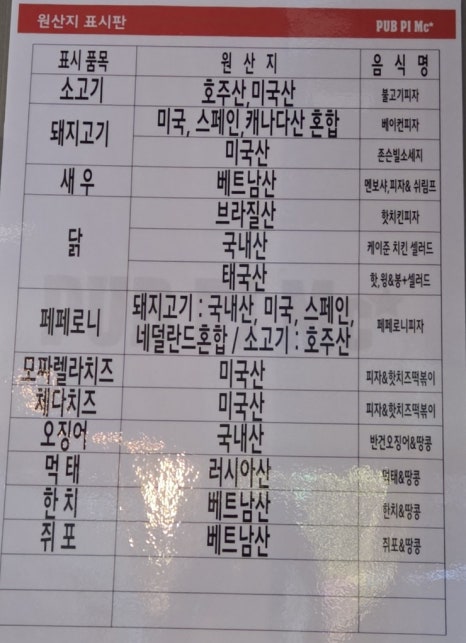 원산지 표시판 PUB PI Mc*
표시 품목 원 산 지 음 식 명
소고기 호주산,미국산 불고기피자
돼지고기 미국, 스페인,캐나다산 혼합 베이컨피자
미국산 존슨빌소세지
새 우 베트남산 멘보샤,피자& 쉬림프
닭 브라질산 핫치킨피자
국내산 케이준 치킨 셀러드
태국산 핫,윙&봉+셀러드
페페로니 돼지고기 : 국내산, 미국, 스페인, 페페로니피자
네덜란드혼합 / 소고기 : 호주산
모짜렐라치즈 미국산 피자&핫치즈떡볶이
체다치즈 미국산 피자&핫치즈떡볶이
오징어 국내산 반건오징어&땅콩
먹 태 러시아산 먹태&땅콩
한 치 베트남산 한치&땅콩
쥐 포 베트남산 쥐포&땅콩